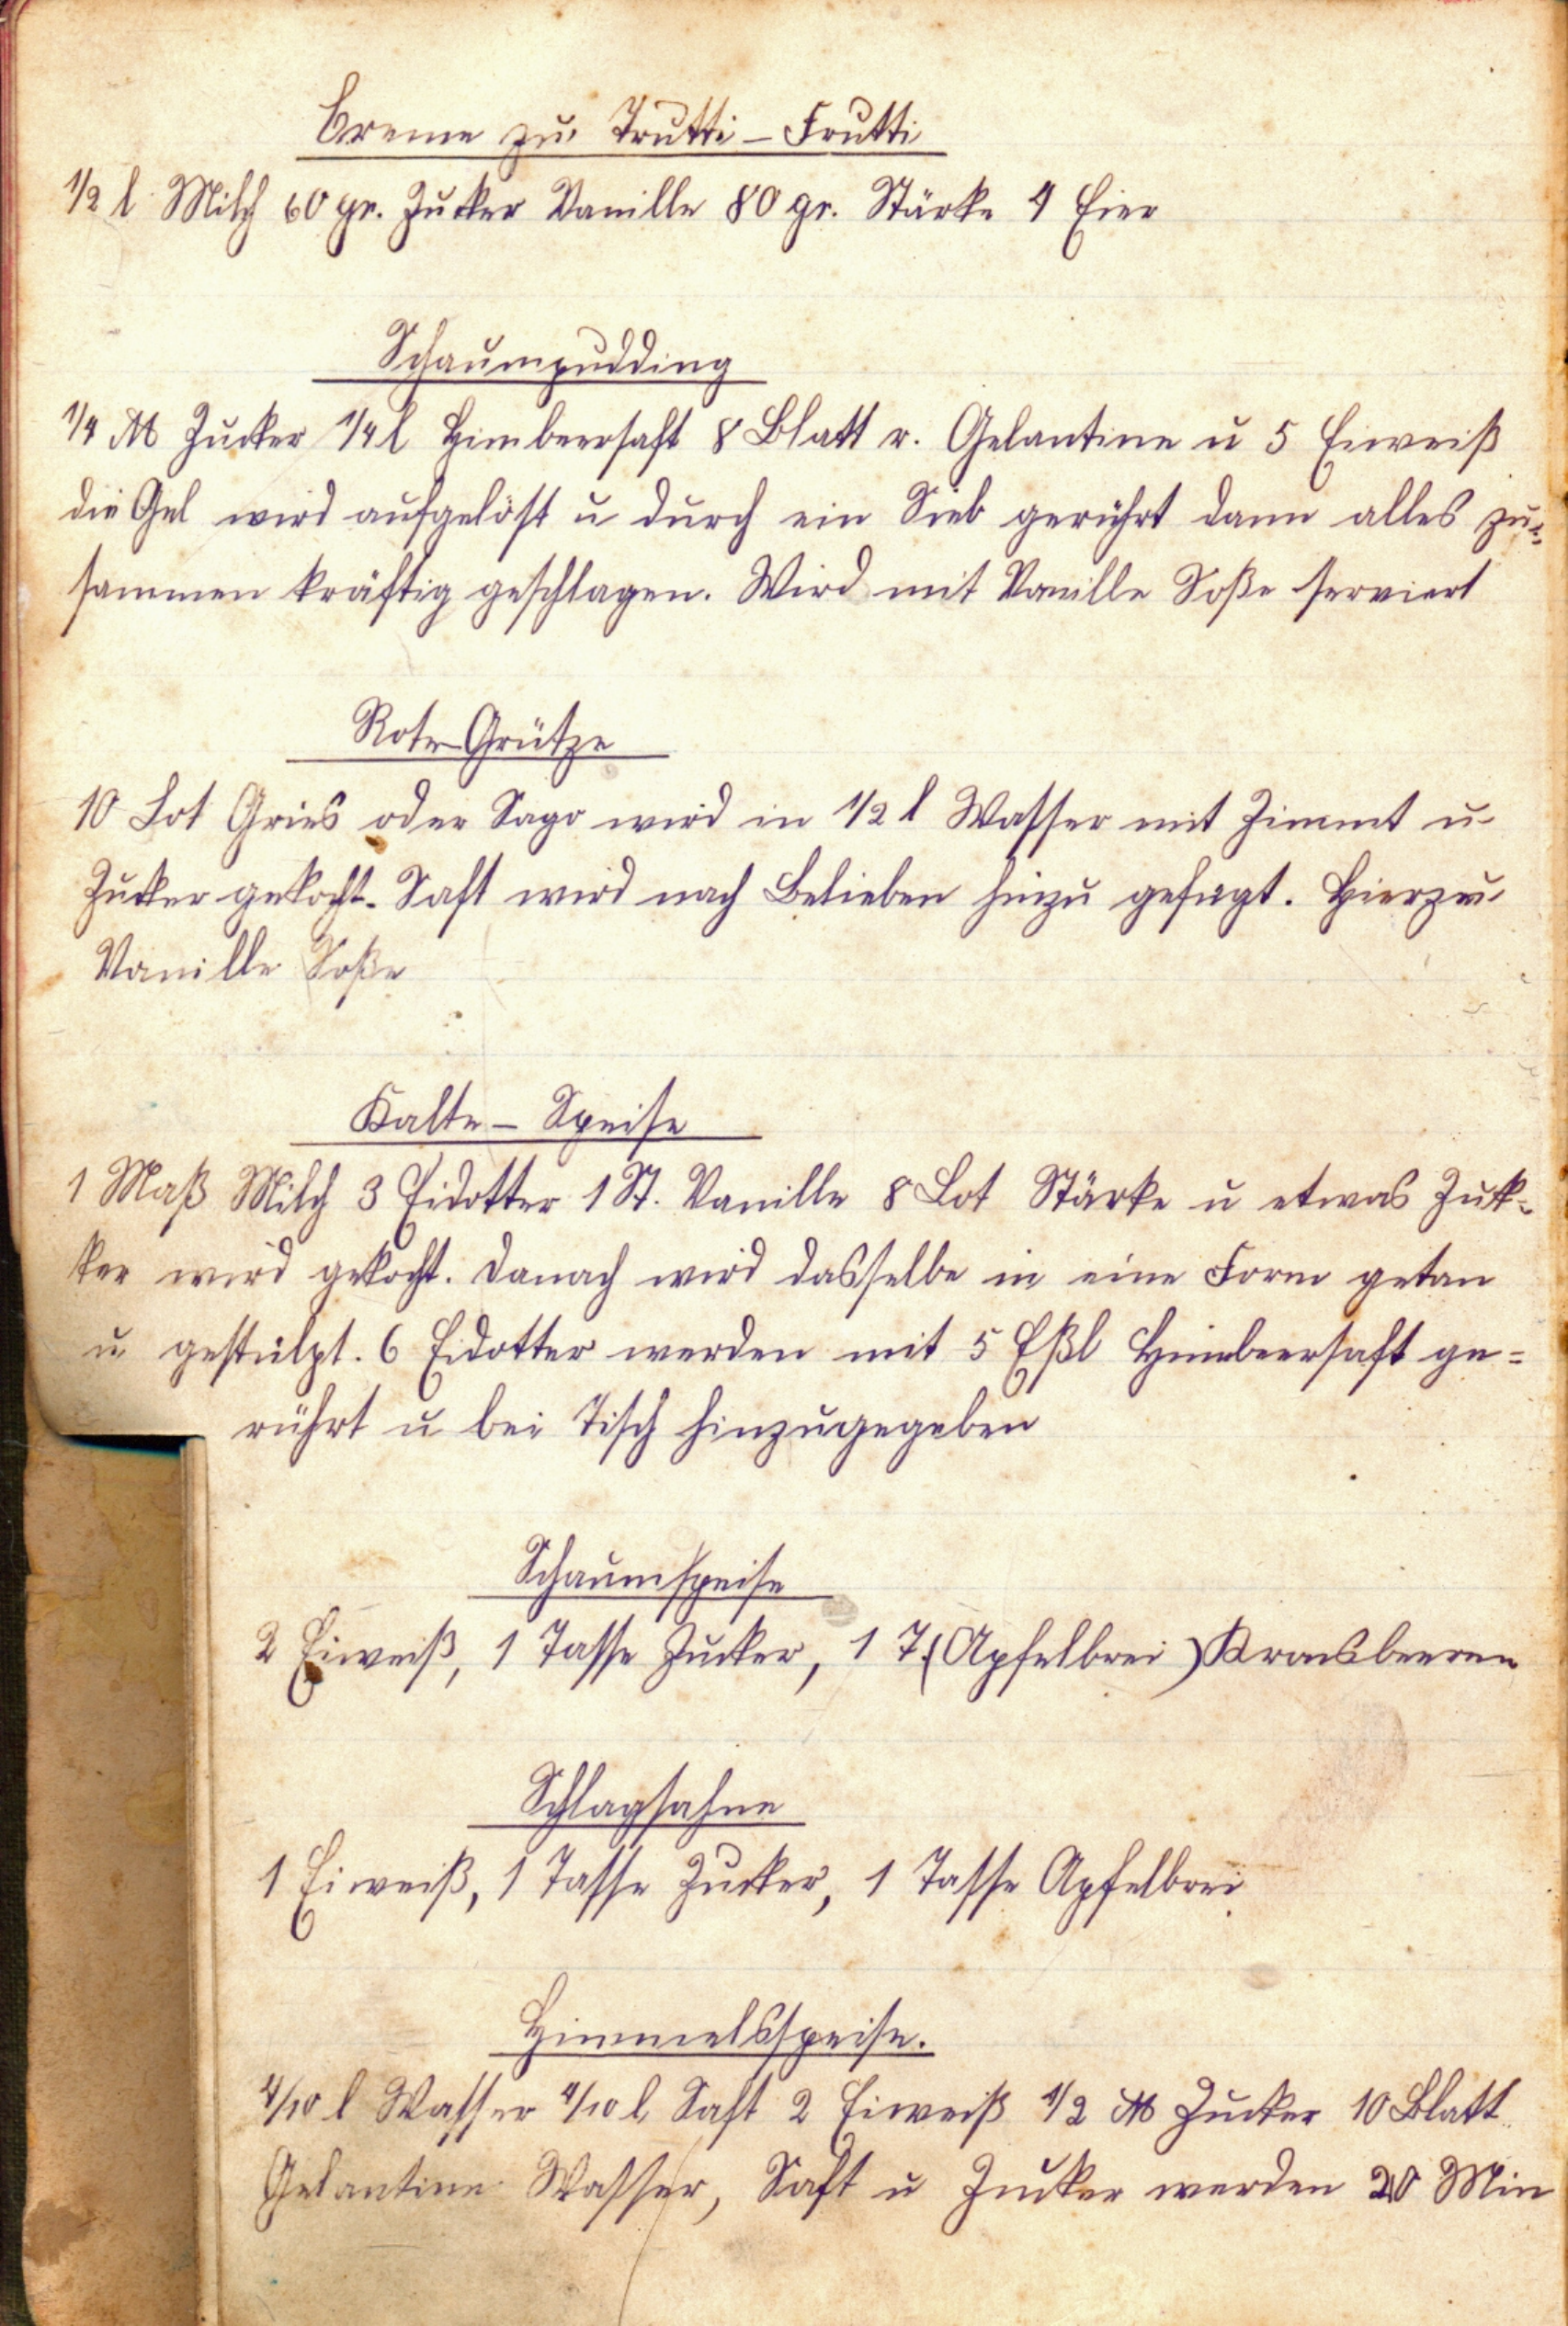 Creme zu Trutti-Frutti
1/2 l Milch 60 gr. Zucker Vanille 80 gr. Stärke 4 Eier
Schaumpudding
1/4 ℔ Zucker 1/4 l Himbeersaft 8 Blatt r. Gelantine u 5 Eiweiß
die Gel wird aufgelöst u durch ein Sieb gerührt dann alles zu=
sammen kräftig geschlagen. Wird mit Vanille Soße serviert
Rote-Grütze
10 Lot Gries oder Sago wird in 1/2 l Wasser mit Zimmt u
Zucker gekocht. Saft wird nach Belieben hinzu gefügt. Hierzu
Vanille Soße
Kalte-Speise
1 Maß Milch 3 Eidotter 1 St. Vanille 8 Lot Stärke u etwas Zuk=
ker wird gekocht. Danach wird dasselbe in eine Form getan
u gestülpt. 6 Eidotter werden mit 5 Eßl Himbeersaft ge=
rührt u bei Tisch hinzugegeben
Schaumspeise
2 Eiweiß, 1 Tasse Zucker, 1 T. (Apfelbrei) Kronsbeeren
Schlagsahne
1 Eiweiß, 1 Tasse Zucker, 1 Tasse Apfelbrei
Himmelsspeise.
4/10 l Wasser 4/10 l Saft 2 Eiweiß 1/2 ℔ Zucker 10 Blatt
Gelantine Wasser, Saft u Zucker werden 20 Min